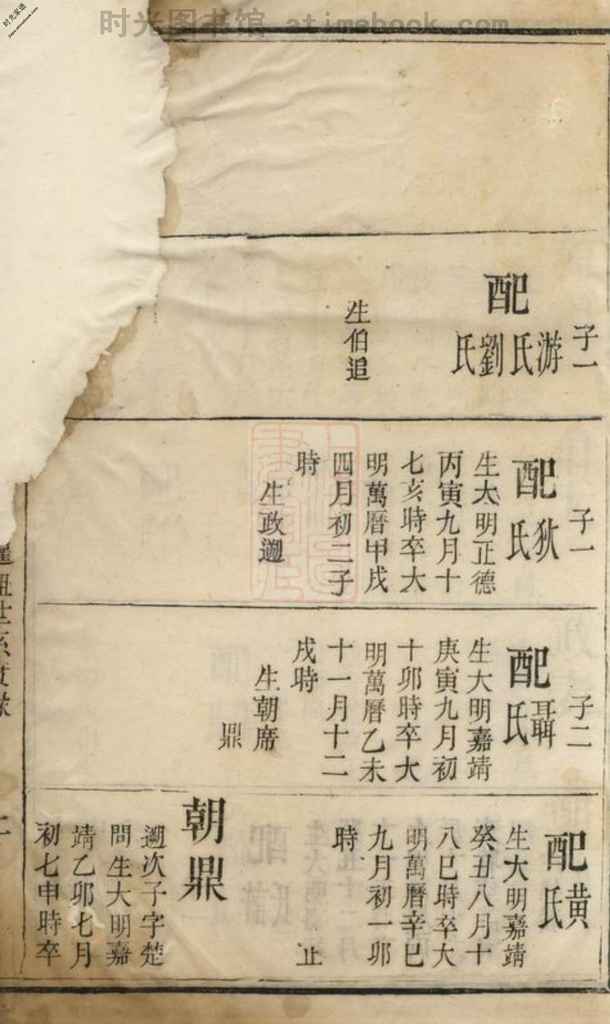 时光图书馆 atimebook.com
时光家谱
www.atimebook.com
子一
配游氏劉氏
生伯追
子一
配狄氏
生大明正德
丙寅九月十
七亥時卒大
明萬曆甲戌
四月初二子
時
生政邇
子二
配聶氏
生大明嘉靖
庚寅九月初
十卯時卒大
明萬曆乙未
十一月十二
戌時
生朝席
鼎
配黄氏
生大明嘉靖
癸丑八月十
八巳時卒大
明萬曆辛巳
九月初一卯
時
止
朝鼎
邇次子字楚
問生大明嘉
靖乙卯七月
初七申時卒
世系
二